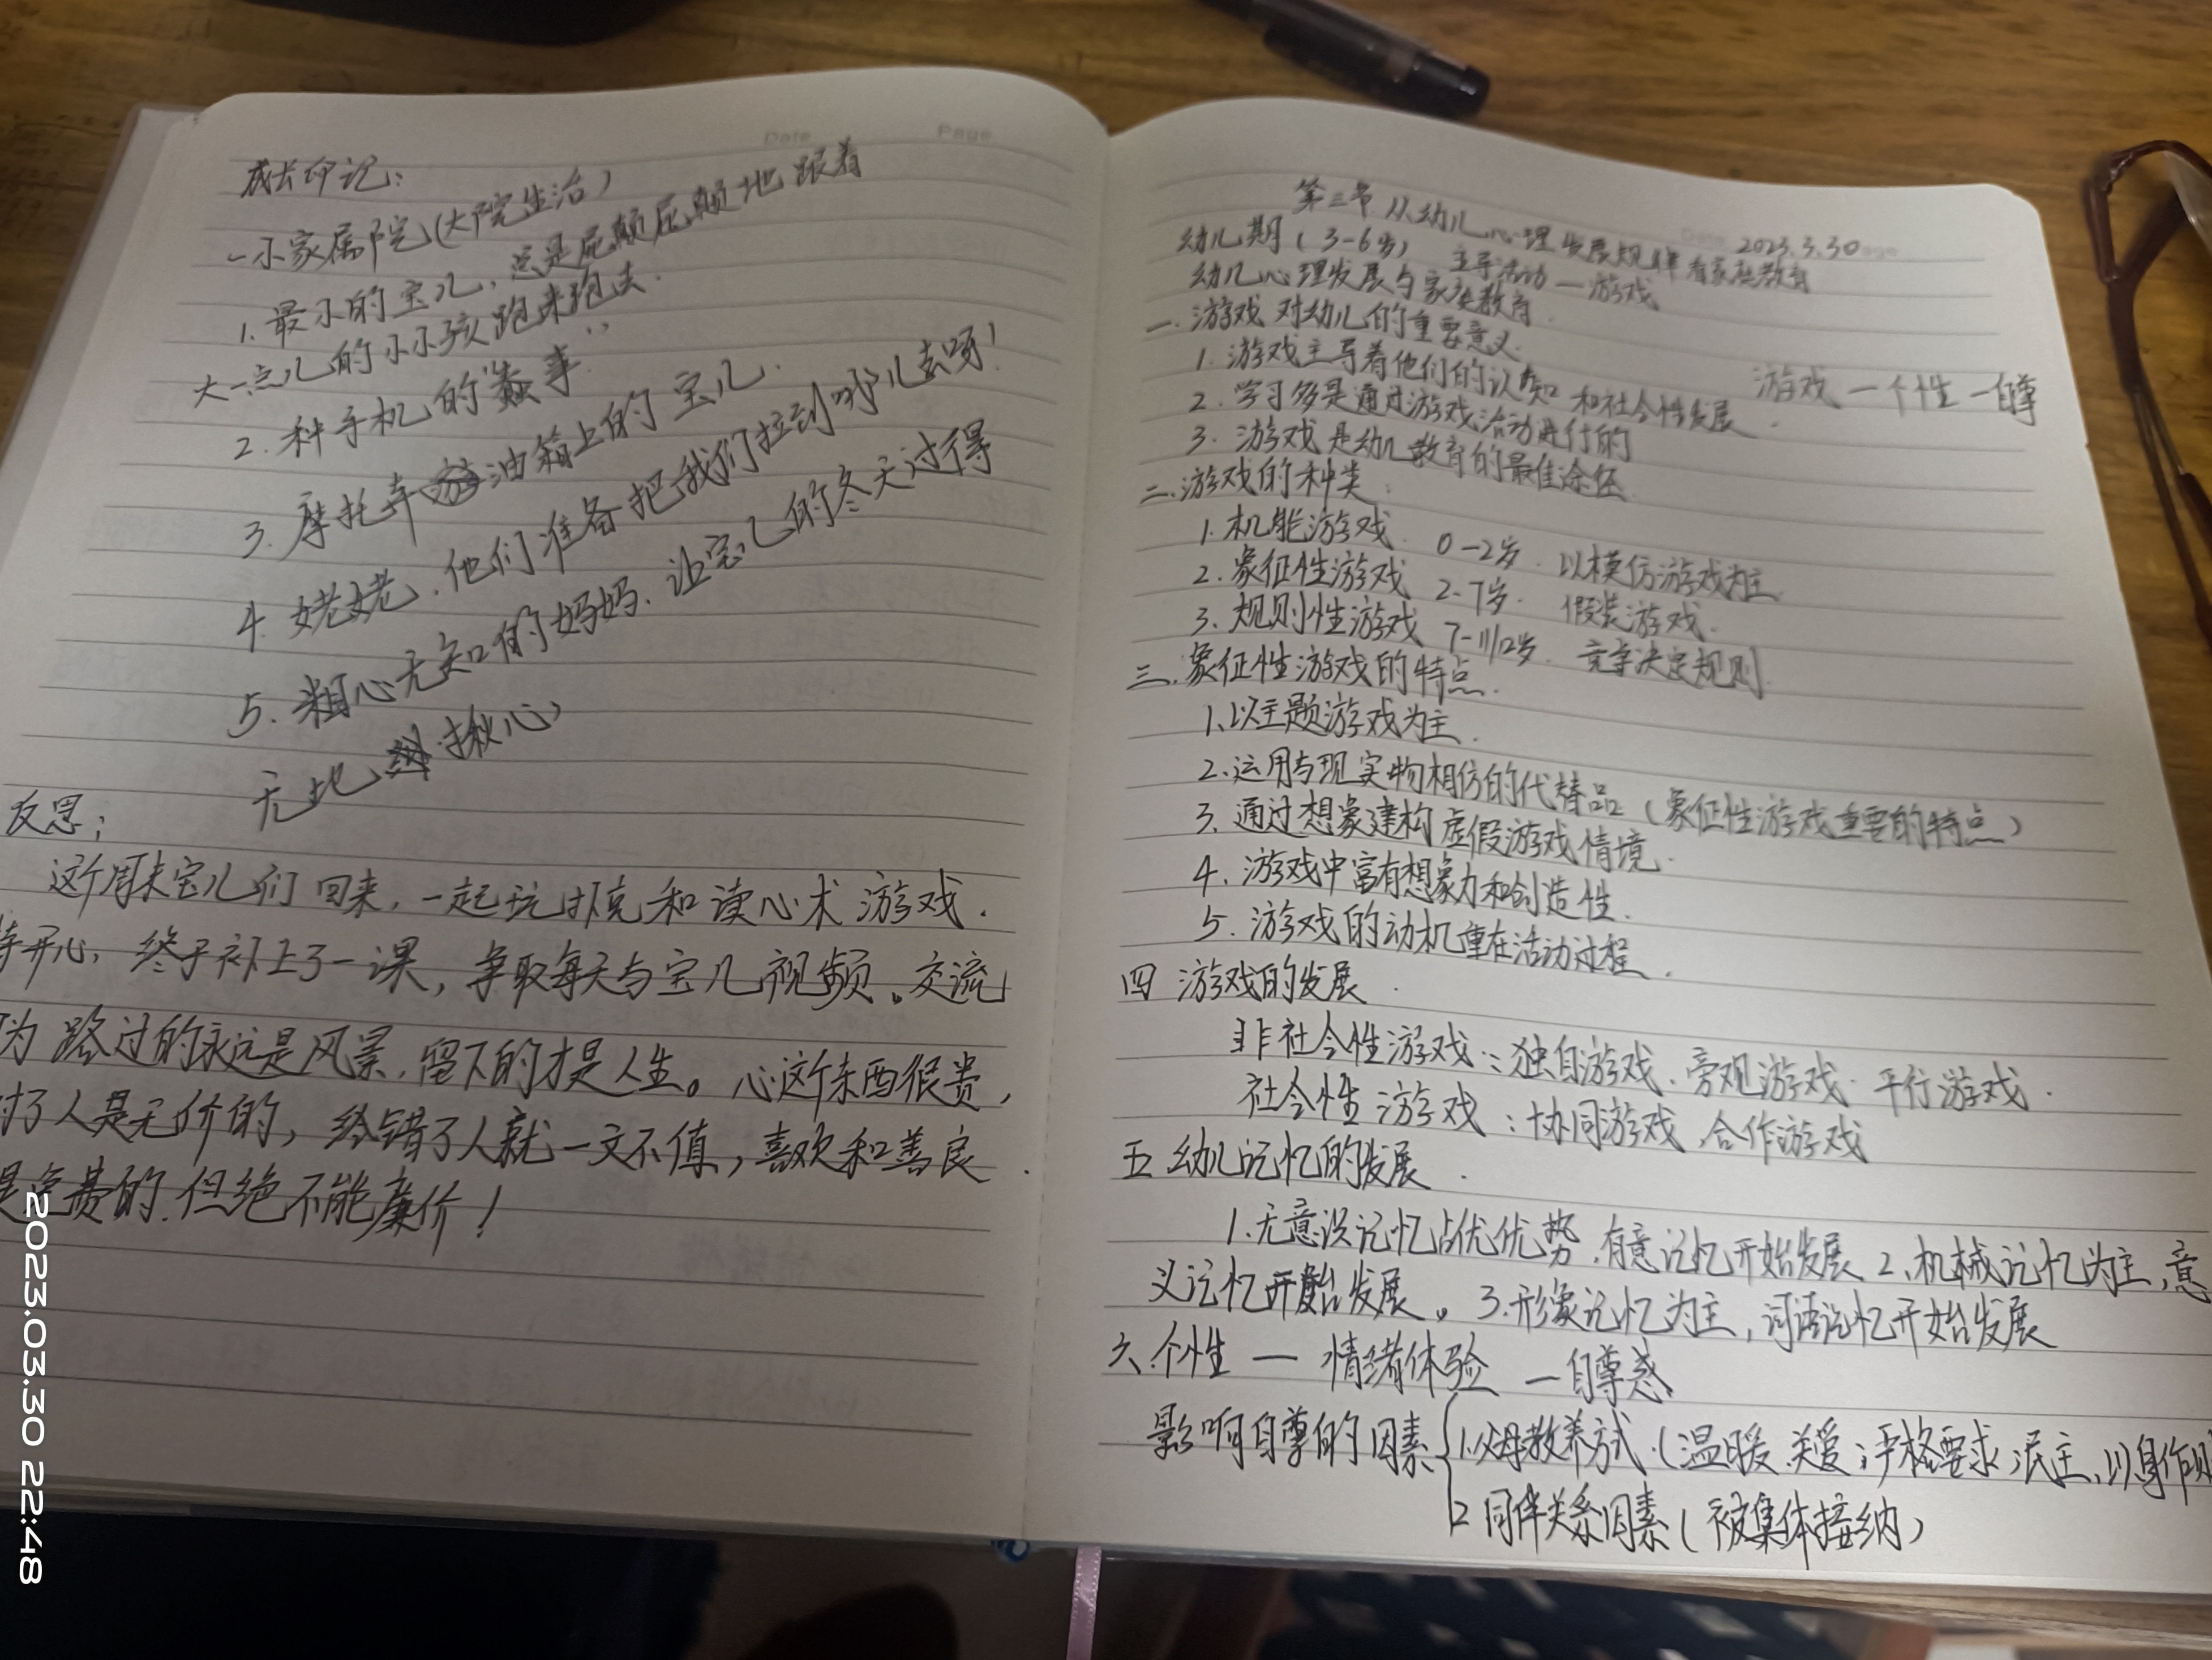 Date Page
成长印记：
一小家属院（大院生活）
1. 最小的宝儿，总是屁颠屁颠地跟着
大一点儿的小小孩跑来跑去.
2. 种手机的"蠢事"
3. 摩托车油箱上的宝儿.
4. 姥姥，他们准备把我们拉到哪儿去呀！
5. 粗心无知的妈妈，让宝儿的冬天过得
无比揪心
反思：
这个周末宝儿们回来，一起玩扑克和读心术游戏.
特开心，终于补上了一课，争取每天与宝儿视频。交流
为路过的永远是风景，留下的才是人生。心这个东西很贵，
对了人是无价的，给错了人就一文不值，喜欢和善良
是免费的.但绝不能廉价！
2023.03.30 22:48
2023.3.30
第三节 从幼儿心理发展规律看家庭教育
幼儿期（3-6岁） 主导活动一游戏
幼儿心理发展与家庭教育.
一. 游戏对幼儿的重要意义.
1. 游戏主导着他们的认知和社会性发展. 游戏一个性一自尊
2. 学习多是通过游戏活动进行的
3. 游戏是幼儿教育的最佳途径.
二. 游戏的种类：
1. 机能游戏. 0-2岁. 以模仿游戏为主
2. 象征性游戏 2-7岁. 假装游戏.
3. 规则性游戏 7-11/12岁. 竞争决定规则
三. 象征性游戏的特点.
1. 以主题游戏为主.
2. 运用与现实物相仿的代替品（象征性游戏重要的特点）
3. 通过想象建构虚假游戏情境.
4. 游戏中富有想象力和创造性.
5. 游戏的动机重在活动过程.
四 游戏的发展.
非社会性游戏：独自游戏、旁观游戏、平行游戏.
社会性游戏：协同游戏、合作游戏
五 幼儿记忆的发展.
1. 无意识记忆占优优势，有意记忆开始发展 2、机械记忆为主，意
义记忆开始发展。3. 形象记忆为主，词语记忆开始发展
六.个性一情绪体验一自尊感
影响自尊的因素 1. 父母教养方式（温暖、关爱；严格要求；民主、以身作则
2 同伴关系因素（被集体接纳）